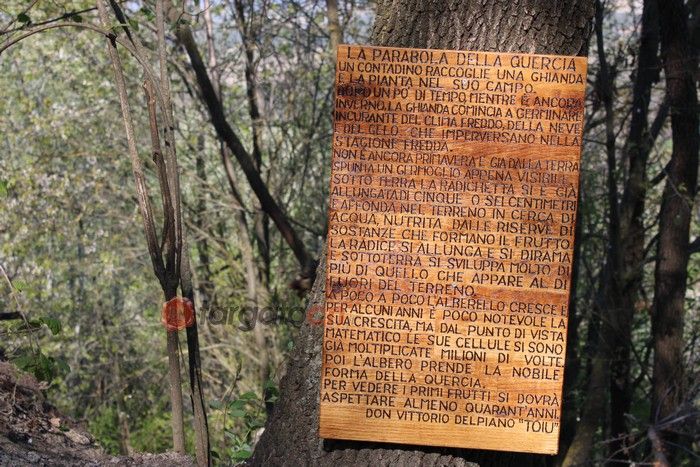 LA PARABOLA DELLA QUERCIA
UN CONTADINO RACCOGLIE UNA GHIANDA
E LA PIANTA NEL SUO CAMPO.
DOPO UN PO' DI TEMPO, MENTRE È ANCORA
INVERNO, LA GHIANDA COMINCIA A GERMINARE
INCURANTE DEL CLIMA FREDDO, DELLA NEVE
E DEL GELO CHE IMPERVERSANO NELLA
STAGIONE FREDDA.
NON È ANCORA PRIMAVERA E GIÀ DALLA TERRA
SPUNTA UN GERMOGLIO APPENA VISIBILE.
SOTTO TERRA LA RADICHETTA SI È GIÀ
ALLUNGATA DI CINQUE O SEI CENTIMETRI
E AFFONDA NEL TERRENO IN CERCA DI
ACQUA, NUTRITA DALLE RISERVE DI
SOSTANZE CHE FORMANO IL FRUTTO.
LA RADICE SI ALLUNGA E SI DIRAMA
E SOTTOTERRA SI SVILUPPA MOLTO DI
PIÙ DI QUELLO CHE APPARE AL DI
FUORI DEL TERRENO.
A POCO A POCO L'ALBERELLO CRESCE E
PER ALCUNI ANNI È POCO NOTEVOLE LA
SUA CRESCITA, MA DAL PUNTO DI VISTA
MATEMATICO LE SUE CELLULE SI SONO
GIÀ MOLTIPLICATE MILIONI DI VOLTE.
POI L'ALBERO PRENDE LA NOBILE
FORMA DELLA QUERCIA.
PER VEDERE I PRIMI FRUTTI SI DOVRÀ
ASPETTARE ALMENO QUARANT'ANNI.
DON VITTORIO DELPIANO "TOIU"
targato